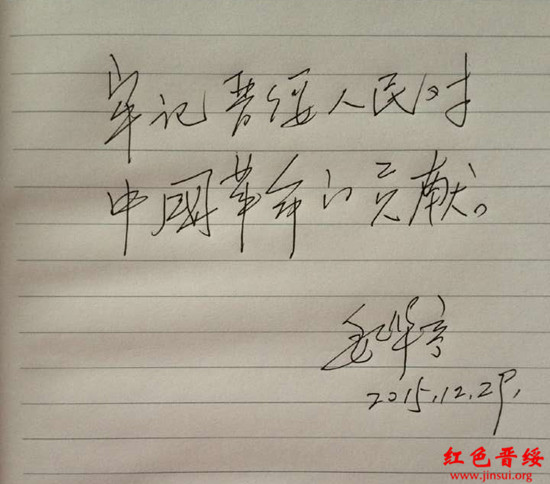 牢记晋绥人民对
中國革命的贡献。
2015.12.29.
红色晋绥
www.jinsui.org